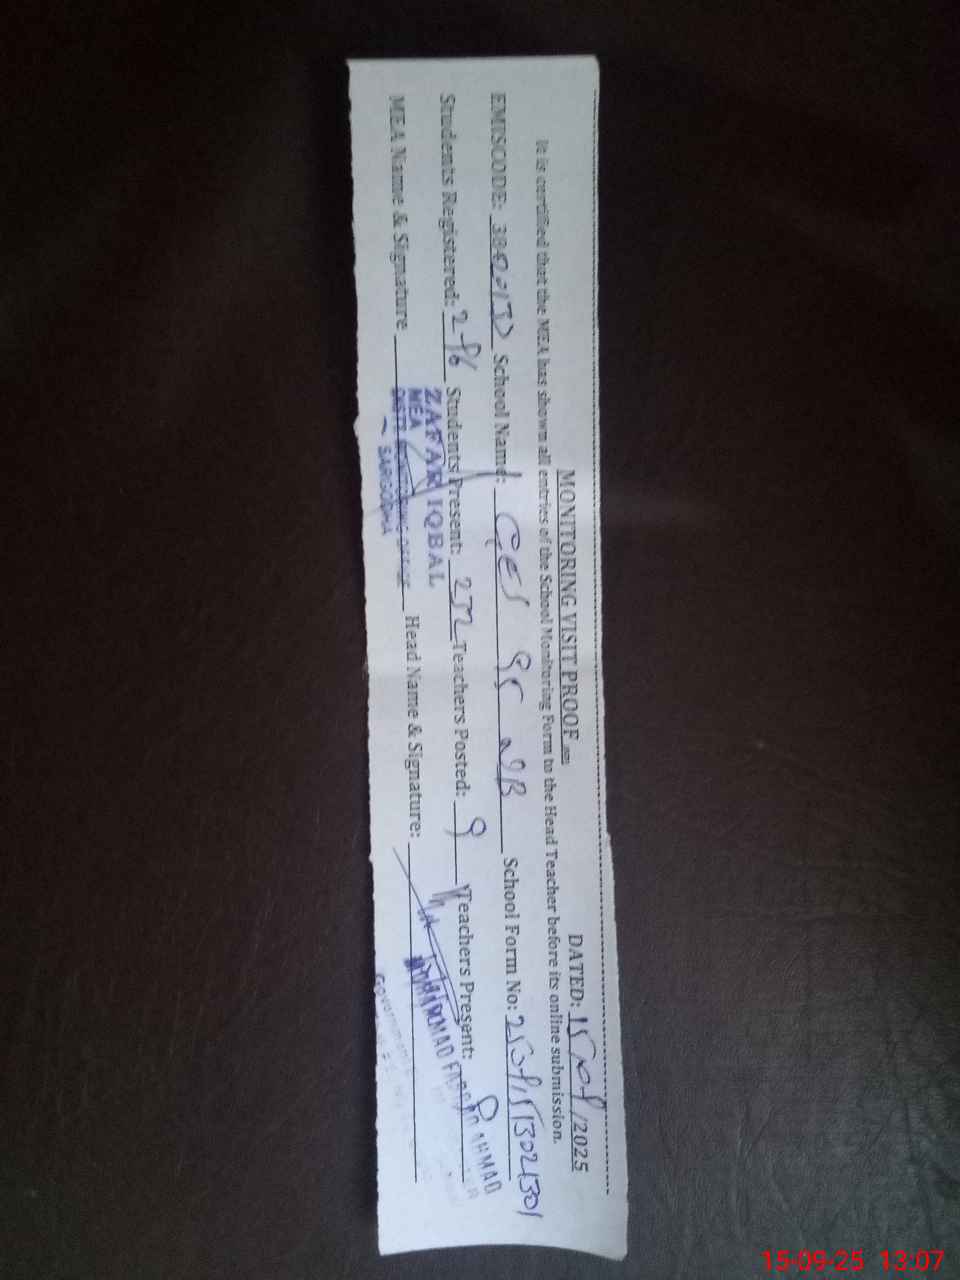 MONITORING VISIT PROOF DATED: 15/09/2025
It is certified that the MEA has shown all entries of the School Monitoring Form to the Head Teacher before its online submission.
EMISCODE: School Name: GES 95 NB School Form No:
Students Registered: 296 Students Present: 272 Teachers Posted: 9 Teachers Present:
MEA Name & Signature Head Name & Signature:
ZAFAR IQBAL
MEA
DISTT MONITORING OFFICE
SARGODHA
AHMAD
15-09-25 13:07